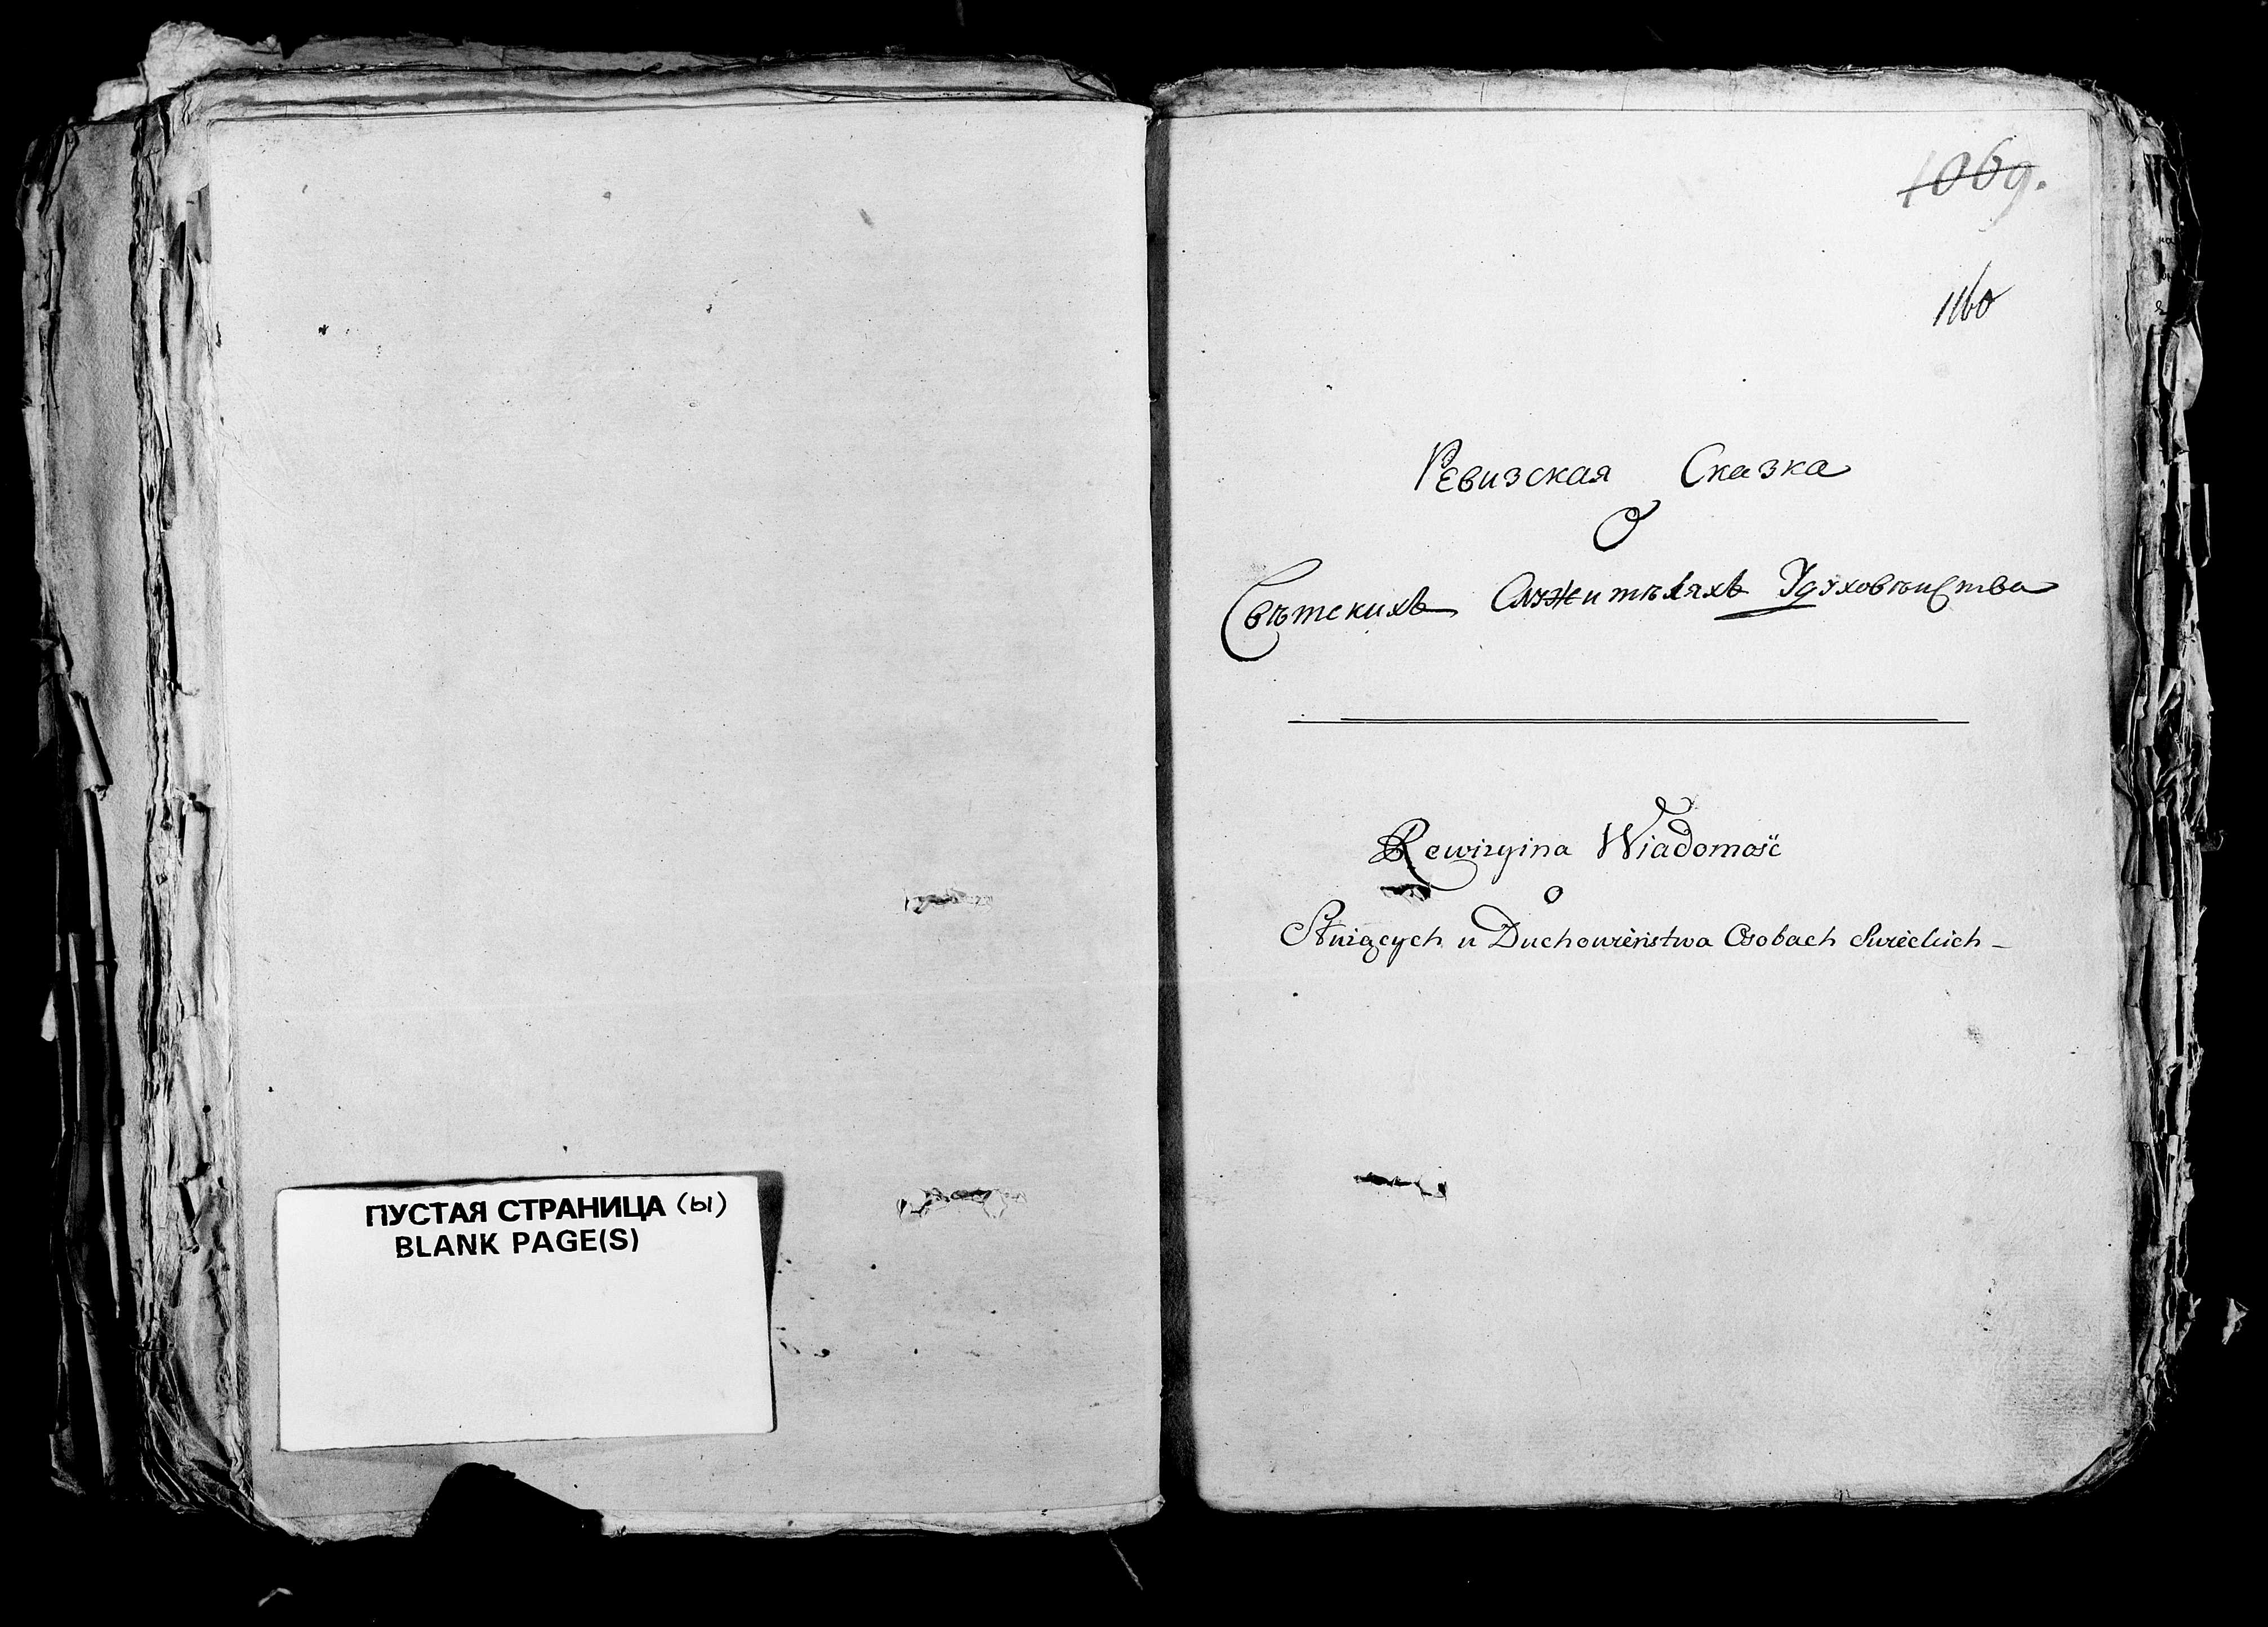 ПУСТАЯ СТРАНИЦА (ы)
BLANK PAGE(S)
1069.
1160
Ревизская Сказка
О
Свѣтскихъ Служитѣляхъ Удуховѣнства
Rewizyina Wiadomość
o
Służących u Duchowieństwa Osobach Swieckich